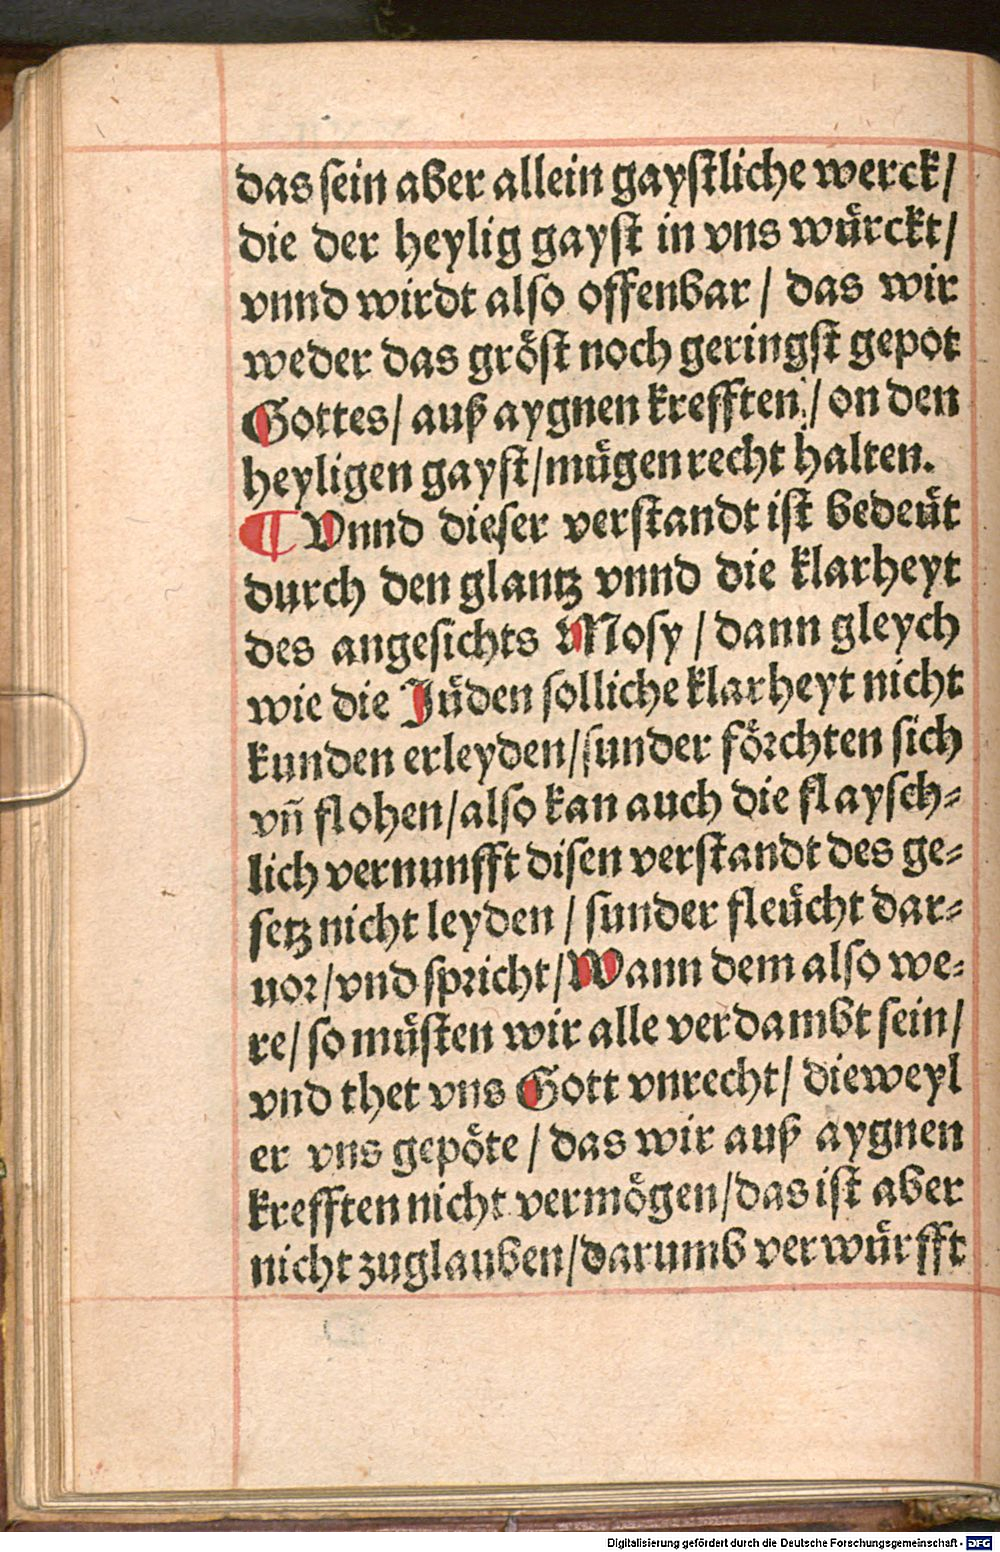 das sein aber allein gaystliche werck/
die der heylig gayst in vns wuͤrckt/
vnnd wirdt also offenbar / das wir
weder das groͤst noch geringst gepot
Gottes/ auß aygnen krefften / on den
heyligen gayst/muͤgen recht halten.
¶ Vnnd dieser verstandt ist bedeuͤt
durch den glantz vnnd die klarheyt
des angesichts Mosy / dann gleych
wie die Juͤden solliche klarheyt nicht
kunden erleyden/sunder foͤrchten sich
vñ flohen/also kan auch die flaysch⸗
lich vernunfft disen verstandt des ge⸗
setz nicht leyden / sunder fleuͤcht dar⸗
uor/vnd spricht/Wann dem also we⸗
re/ so muͤsten wir alle verdambt sein/
vnd thet vns Gott vnrecht/ dieweyl
er vns gepoͤte / das wir auß aygnen
krefften nicht vermoͤgen/das ist aber
nicht zuglauben/darumb verwuͤrfft
Digitalisierung gefördert durch die Deutsche Forschungsgemeinschaft - DFG